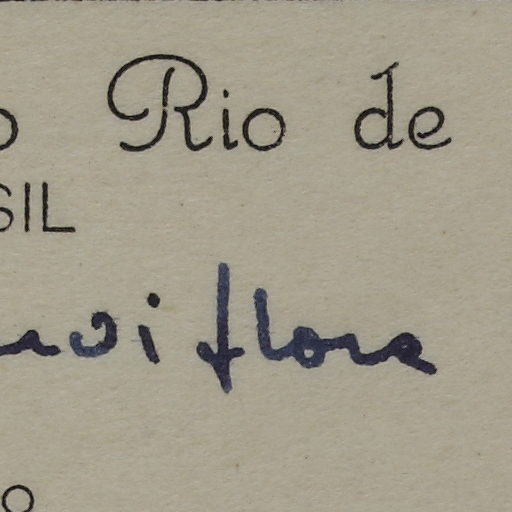 o Rio de
SIL
aviflora
o